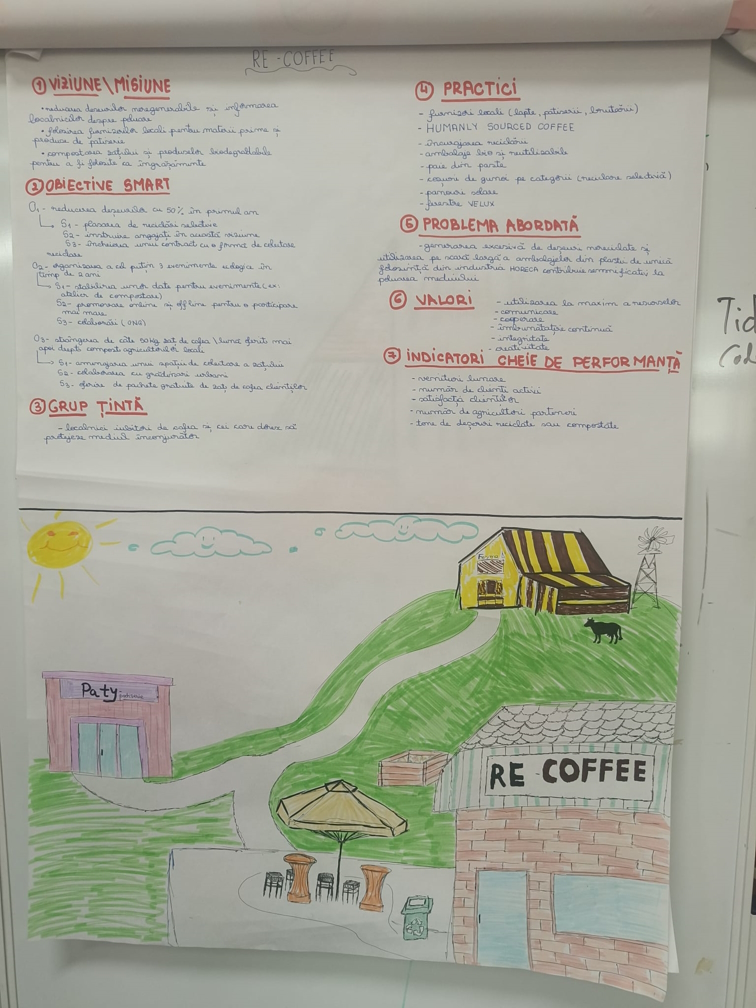 RE-COFFEE
① VIZIUNE\MISIUNE
• reducerea deșeurilor neregenerabile și informarea
localnicilor despre poluare
• folosirea furnizorilor locali pentru materii prime și
produse de patiserie
• compostarea zațului și produselor biodegradabile
pentru a fi folosite ca îngrășăminte
② OBIECTIVE SMART
O1 - reducerea deșeurilor cu 50% în primul an
S1 - plasarea de reciclări selective
S2 - instruire angajați în această viziune
S3 - încheierea unui contract cu o firmă de colectare
reciclare
O2 - organizarea a cel puțin 3 evenimente
timp de 2 ani
S1 - stabilirea unor date pentru evenimente (ex:
atelier de compostare)
S2 - promovare online și offline pentru o participare
mai mare
S3 - colaborări (ONG)
O3 - strângerea de câte 50 kg zaț de cafea / lună oferit mai
apoi drept compost agricultorilor locali
S1 - amenajarea unui spațiu de colectare a zațului
S2 - colaborarea cu grădinari urbani
S3 - oferire de pachete gratuite de zaț de cafea clienților
③ GRUP ȚINTĂ
- localnicii iubitori de cafea și cei care doresc să
protejeze mediul înconjurător
④ PRACTICI
- furnizori locali (lapte, patiserii, brutării)
- HUMANLY SOURCED COFFEE
- încurajarea reciclării
- ambalaje bio și reutilizabile
- paie din paste
- coșuri de gunoi pe categorii (reciclare selectivă)
- panouri solare
- ferestre VELUX
⑤ PROBLEMA ABORDATĂ
- generarea excesivă de deșeuri nereciclate și
utilizarea pe scară largă a ambalajelor din plastic de unică
folosință din industria HORECA contribuie semnificativ la
poluarea mediului
⑥ VALORI
- utilizarea la maxim a resurselor
- comunicare
- cooperare
- îmbunătățire continuă
- integritate
- creativitate
⑦ INDICATORI CHEIE DE PERFORMANȚĂ
- venituri lunare
- număr de clienți activi
- satisfacția clienților
- număr de agricultori parteneri
- tone de deșeuri reciclate sau compostate
Paty
RE-COFFEE